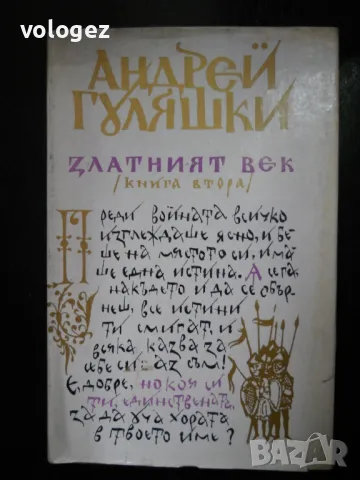 vologez
АНДРЕЙ
ГУЛЯШКИ
ЗЛАТНИЯТ ВЕК
/КНИГА ВТОРА/
ПРЕДИ ВОЙНАТА ВСИЧКО
ИЗГЛЕЖДАШЕ ЯСНО, И БЕ-
ШЕ НА МЯСТОТО СИ, ИМА-
ШЕ ЕДНА ИСТИНА. А СЕГА,
НАКЪДЕТО И ДА СЕ ОБЪР-
НЕШ, ВСЕ ИСТИНИ
ТИ СМИГАТ, И
ВСЯКА КАЗВА ЗА
СЕБЕ СИ: АЗ СЪМ!
Е, ДОБРЕ, НО КОЯ СИ
ТИ, ЕДИНСТВЕНАТА,
ЗА ДА УЧА ХОРАТА
В ТВОЕТО ИМЕ?
BAZAR